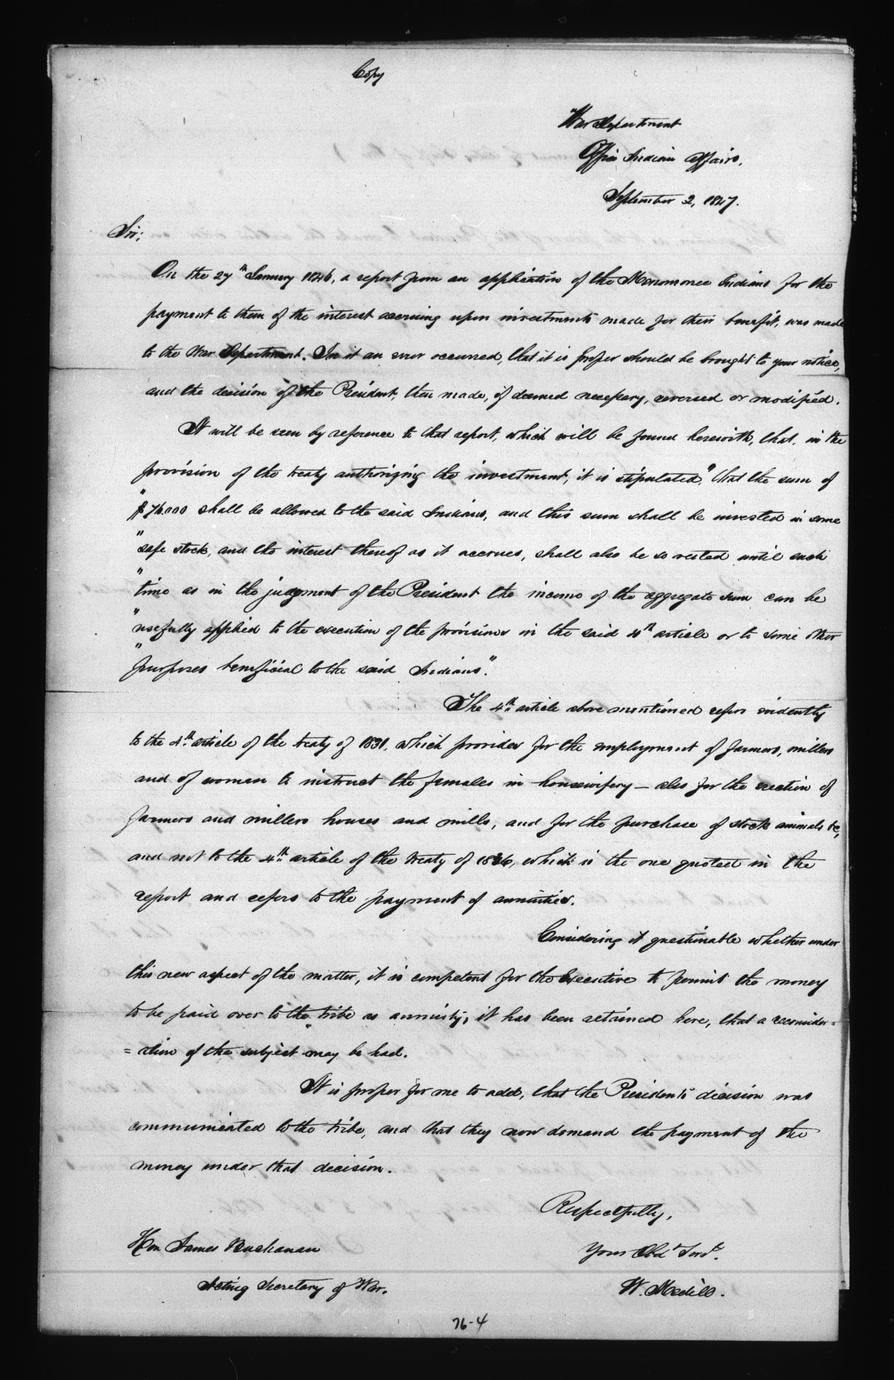 Copy
War Department
Office Indian Affairs,
September 2, 1847.
Sir;
On the 27th January 1846, a report from an application of the Menomonee Indians for the
payment to them of the interest accruing upon investments made for their benefit, was made
to the War Department. In it an error occurred, that it is proper should be brought to your notice,
and the decision of the President, then made, if deemed necessary, reversed or modified.
It will be seen by reference to that report, which will be found herewith, that, in the
provision of the treaty authorizing the investment, it is stipulated "that the sum of
"$76.000 shall be allowed to the said Indians, and this sum shall be invested in some
"safe stock, and the interest thereof as it accrues, shall also be so vested until such
"time as in the judgment of the President the income of the aggregate sum can be
"usefully applied to the execution of the provisions in the said 4th article or to some other
"purposes beneficial to the said Indians".
The 4th article above mentioned refers evidently
to the 4th article of the treaty of 1831, which provides for the employment of farmers, millers
and of women to instruct the females in housewifery — also for the erection of
farmers and millers houses and mills, and for the purchase of stock animals &c,
and not to the 4th article of the treaty of 1836, which is the one quoted in the
report and refers to the payment of annuities.
Considering it questionable whether under
this new aspect of the matter, it is competent for the Executive to permit the money
to be paid over to the tribe as annuity, it has been retained here, that a reconsider=
=ation of the subject may be had.
It is proper for me to add, that the Presidents decision was
communicated to the tribe, and that they now demand the payment of the
money under that decision.
Respectfully,
Hon James Buchanan
Your Obdt Servt.
Acting Secretary of War.
W. Medill.
76-4